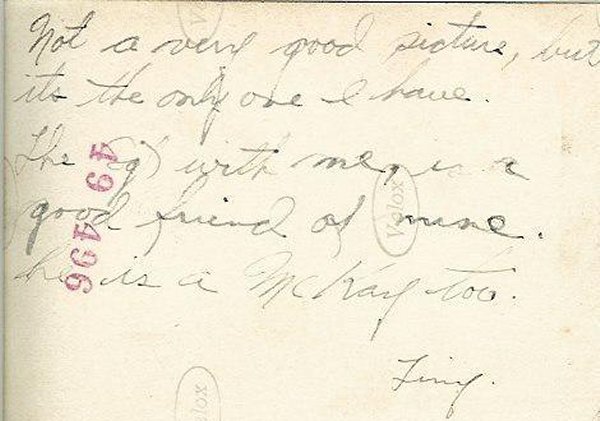 Not a very good picture, but
its the only one I have.
The with me is a
good friend of mine.
he is a McKay too.
49 496
Velox